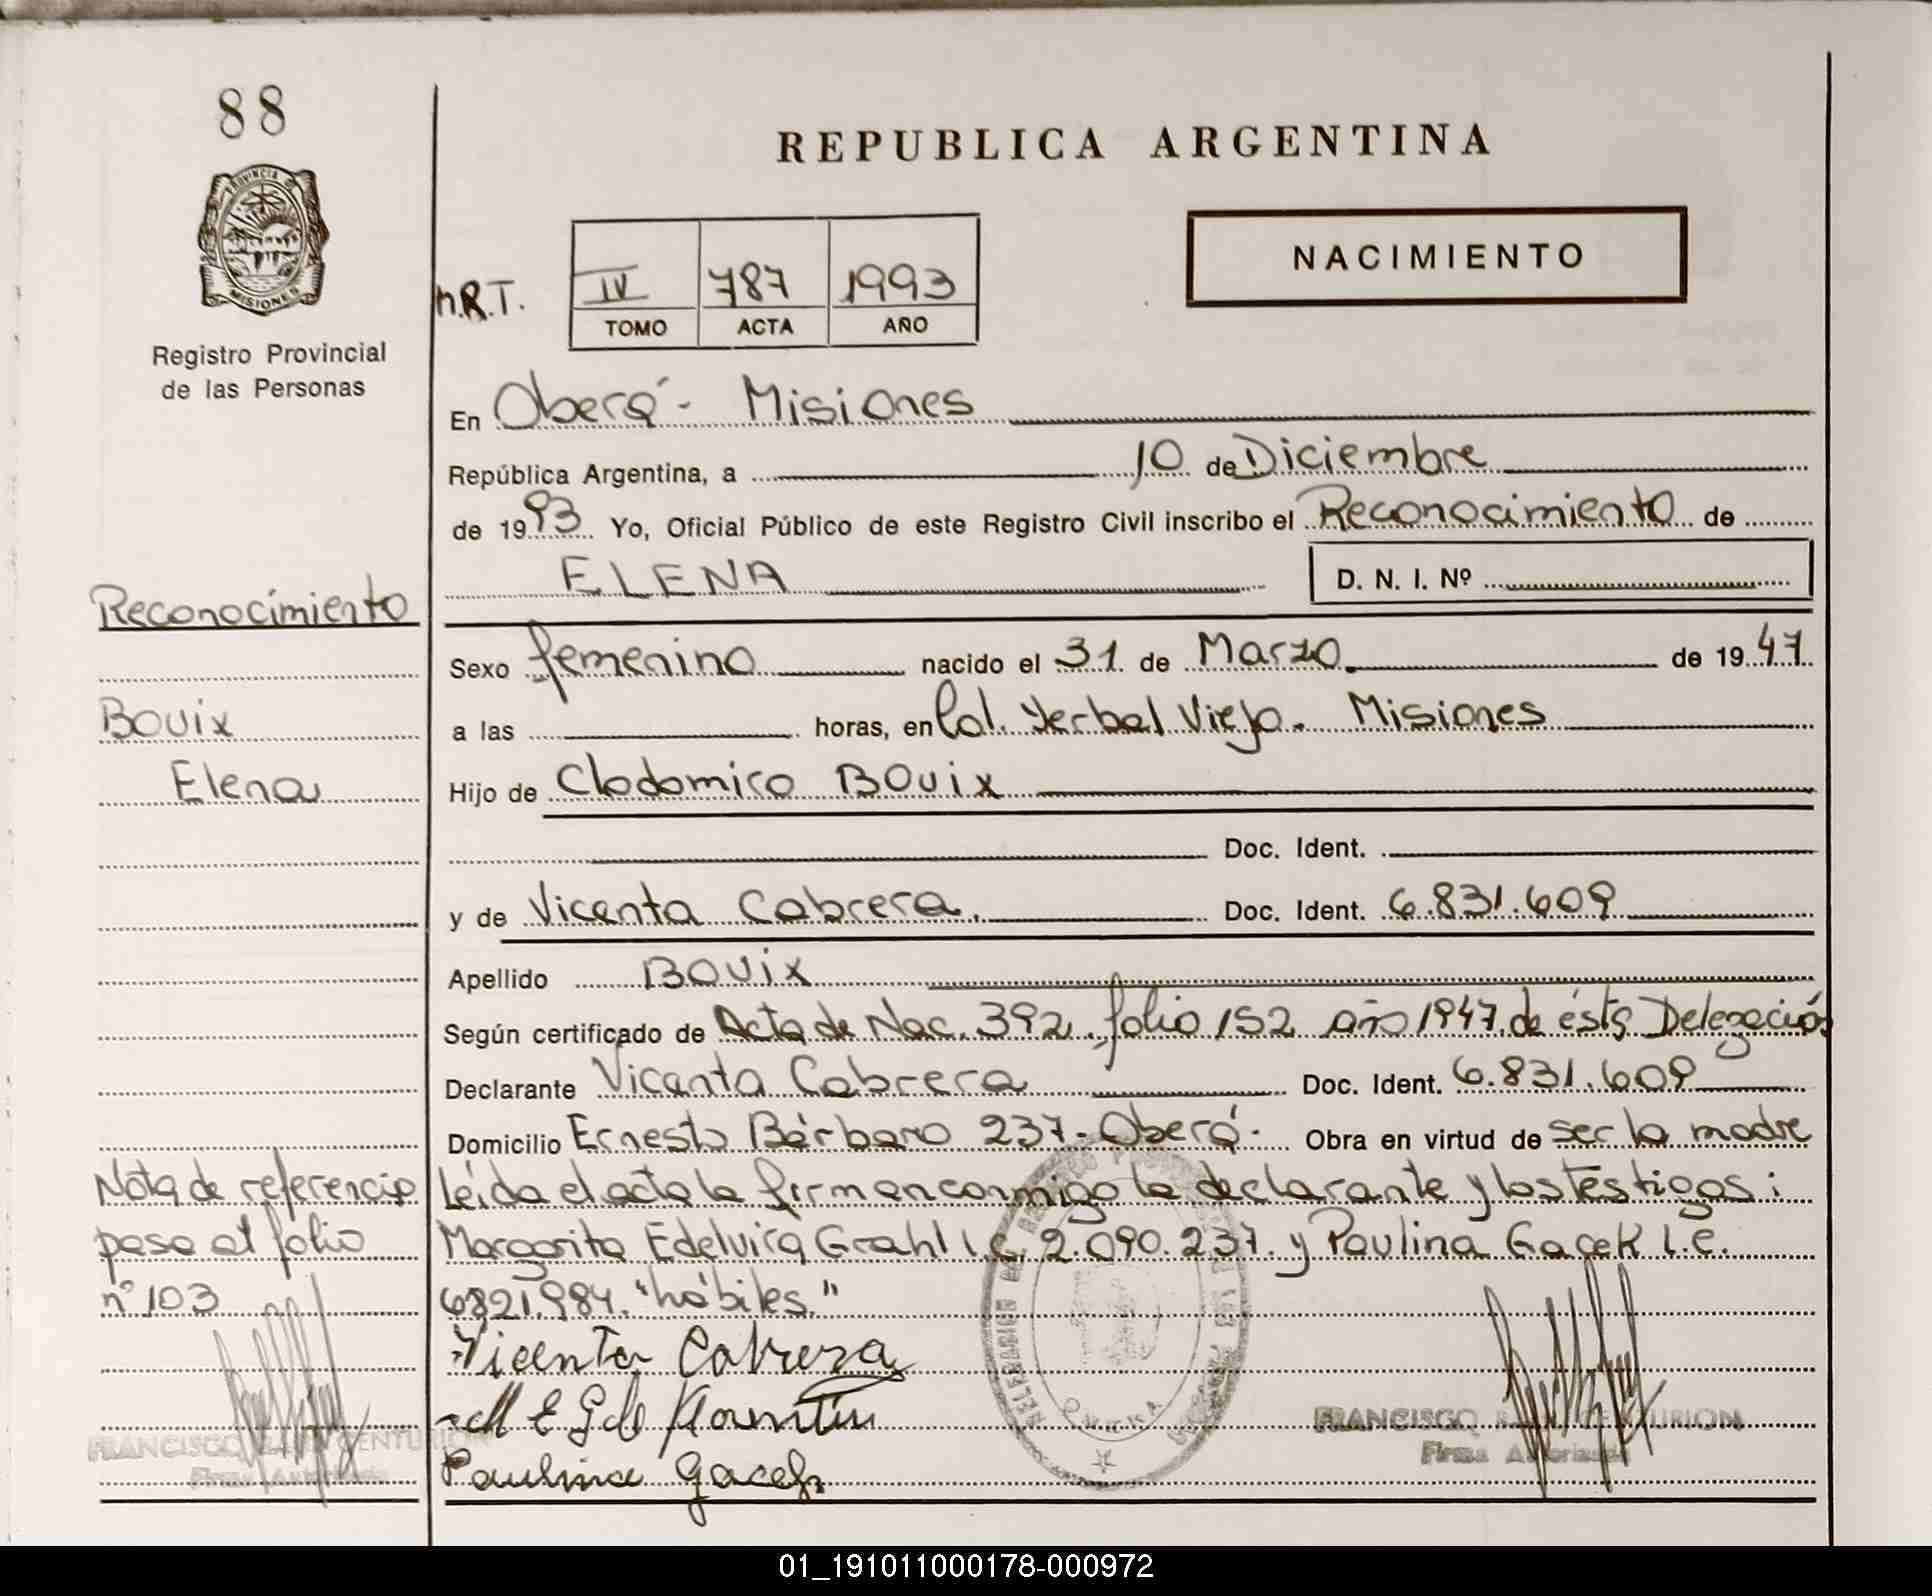 88
REPUBLICA ARGENTINA
PROVINCIA DE
MISIONES
Registro Provincial
de las Personas
n.R.T.
IV 787 1993
TOMO ACTA AÑO
NACIMIENTO
En Oberá - Misiones
República Argentina, a 10 de Diciembre
de 1993 Yo, Oficial Público de este Registro Civil inscribo el Reconocimiento de
ELENA D. N. I. Nº
Reconocimiento
Sexo femenino nacido el 31 de Marzo de 1947
Bouix
a las horas, en Col. Yerbal Viejo. Misiones
Elena
Hijo de Clodomiro Bouix
Doc. Ident.
y de Vicenta Cabrera. Doc. Ident. 6.831.609
Apellido Bouix
Según certificado de Acta de Nac. 392 folio 152 año 1947 de ésta Delegación
Declarante Vicenta Cabrera Doc. Ident. 6.831.609
Domicilio Ernesto Bárbaro 237 - Oberá - Obra en virtud de ser la madre
Nota de referencia
pase al folio
nº 103
Leída el acta la firman conmigo la declarante y los testigos:
Margarita Edelvira Grahl L.C. 2.090.237. y Paulina Gacek L.C.
6821.984. "hábiles."
Vicenta Cabrera
M E G de
Paulina Gacek
FRANCISCO CENTURION
Firma Autorizada
FRANCISCO CENTURION
Firma Autorizada
01_191011000178-000972